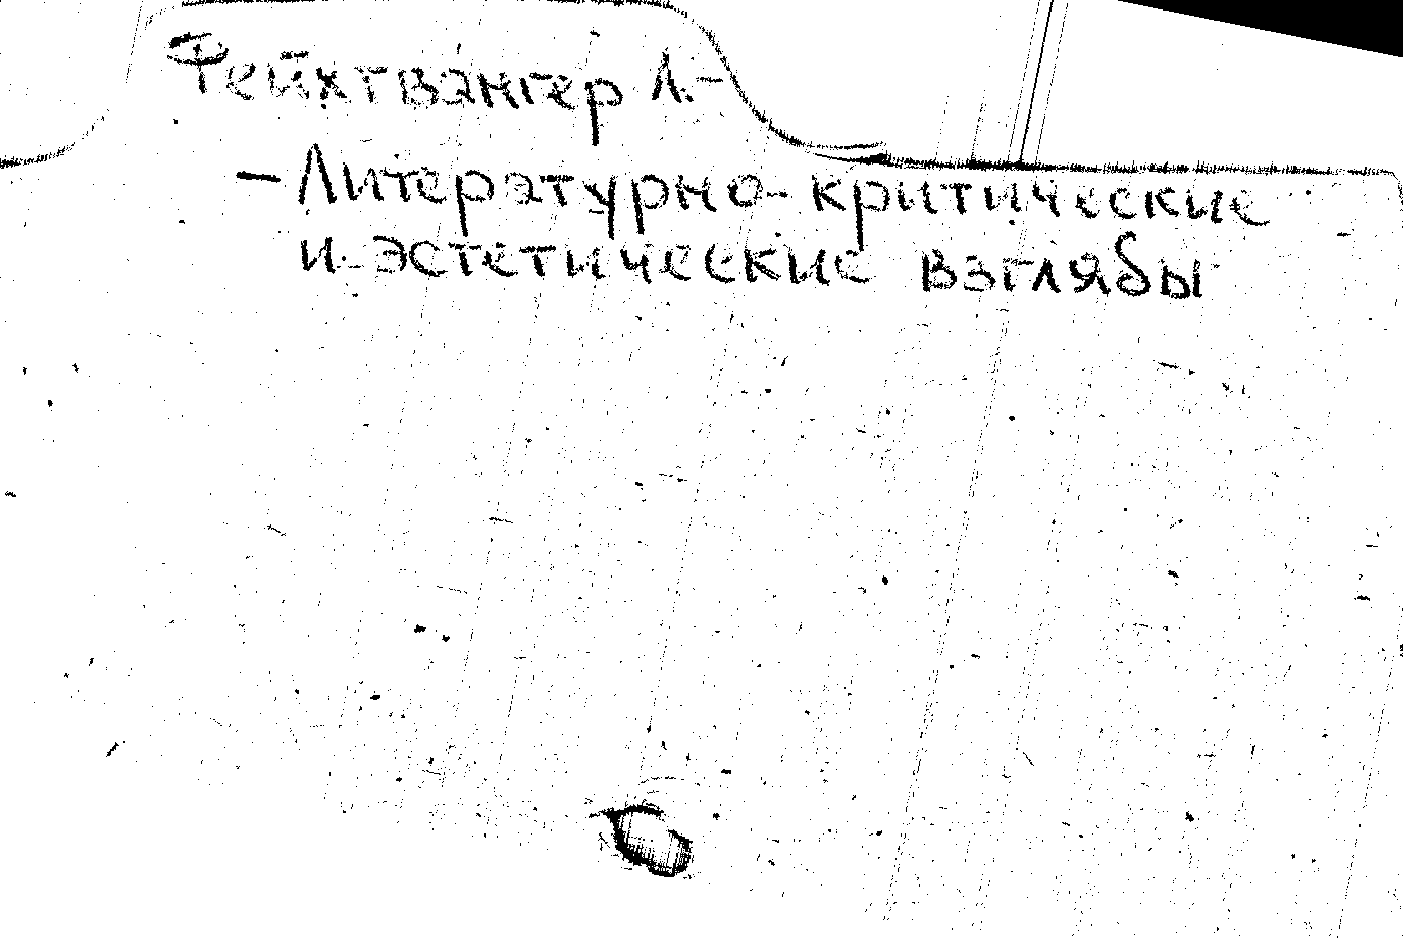 Фейхтвангер Л. –
– Литературно-критические
и эстетические взгляды